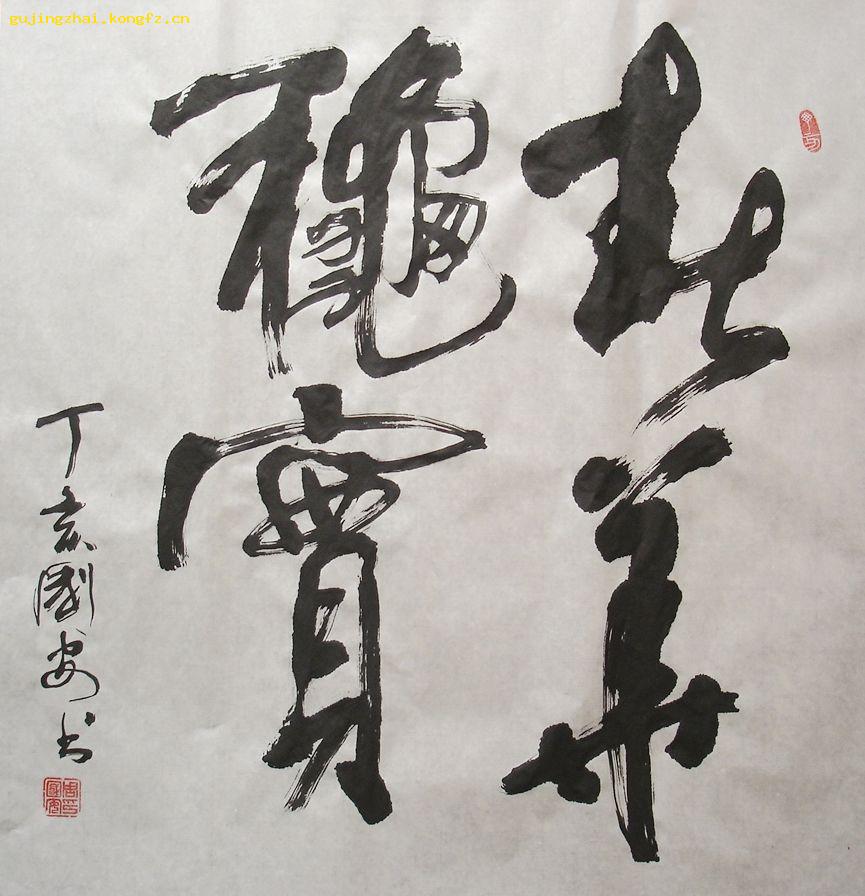 gujingzhai.kongfz.cn
春華
龝實
丁亥國安书